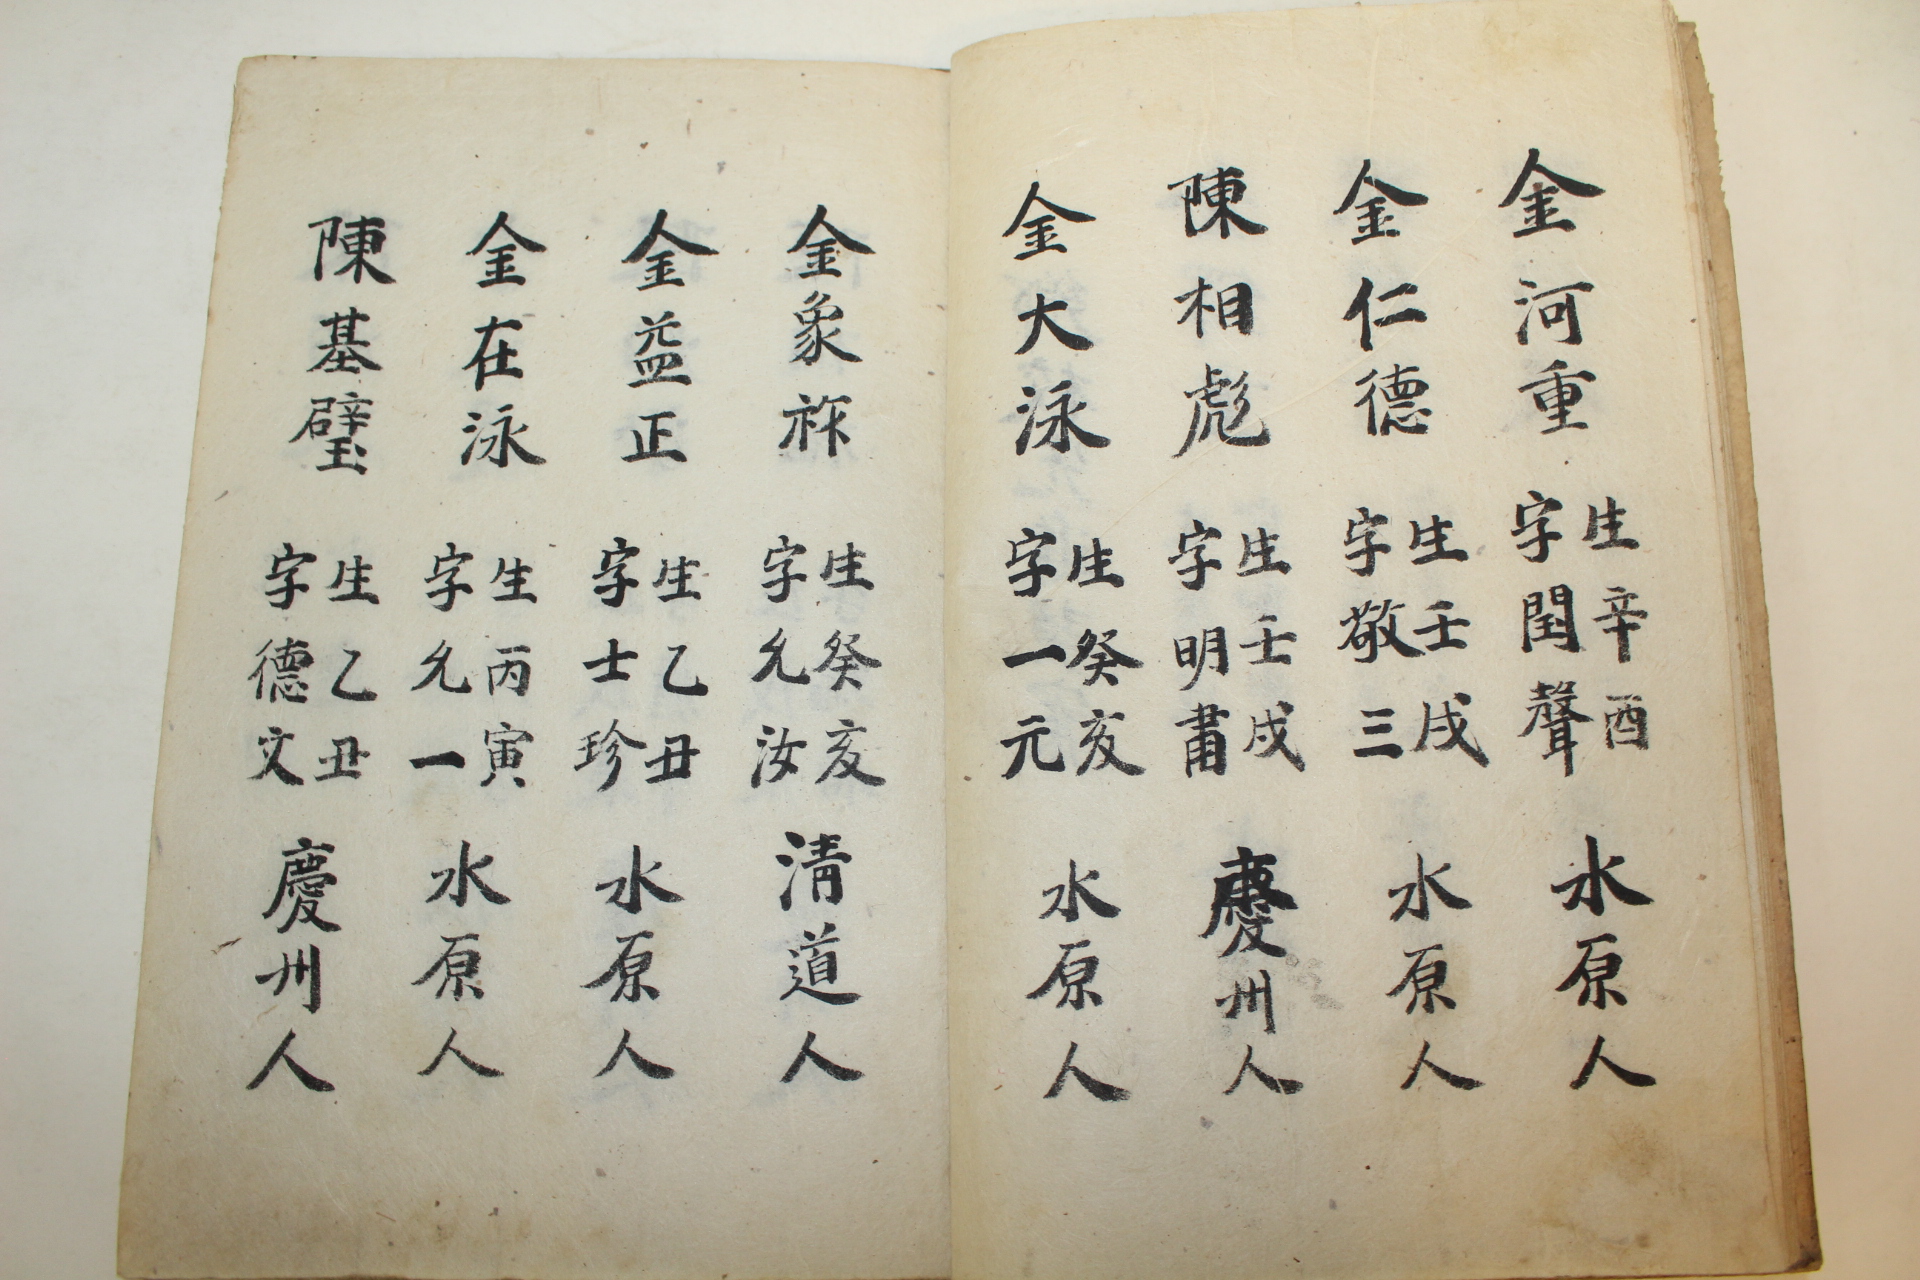 金河重
生辛酉
字閏聲
水原人
金仁德
生壬戌
字敬三
水原人
陳相彪
生壬戌
字明甫
慶州人
金大泳
生癸亥
字一元
水原人
金象祚
生癸亥
字允汝
清道人
金益正
生乙丑
字士珍
水原人
金在泳
生丙寅
字允一
水原人
陳基璧
生乙丑
字德文
慶州人